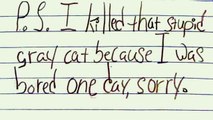 P.S. I killed that stupid
gray cat because I was
bored one day, sorry.